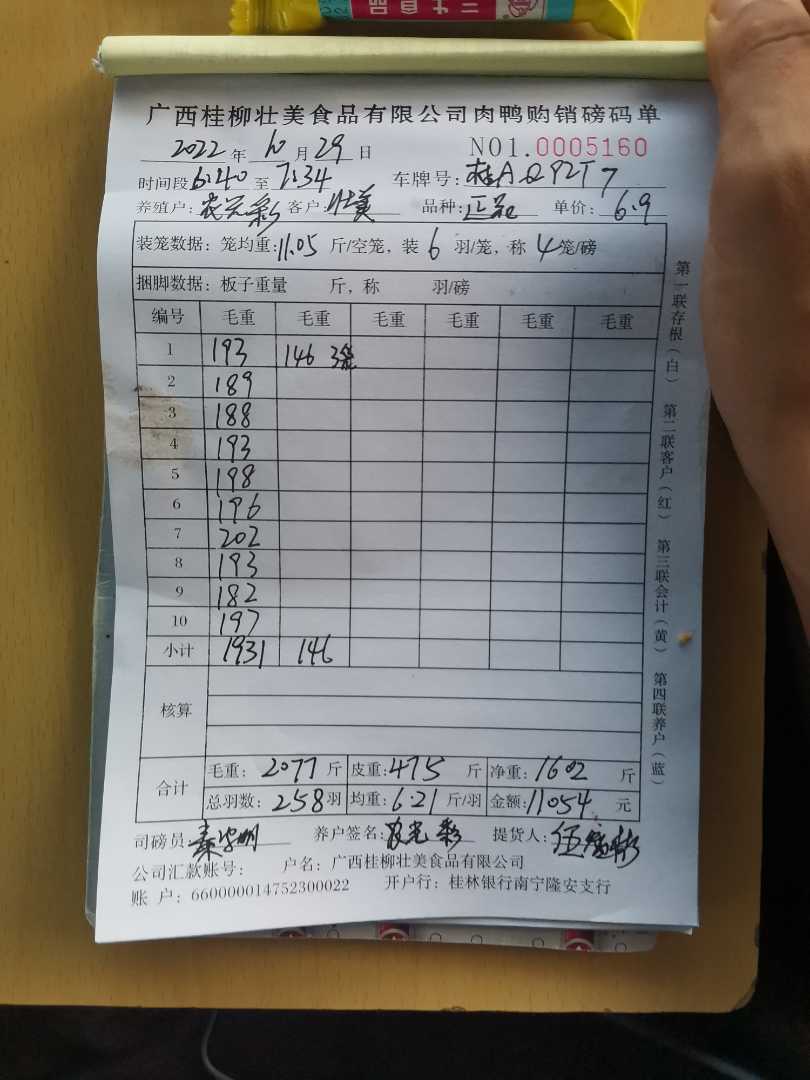 广西桂柳壮美食品有限公司肉鸭购销磅码单
2022 年 10 月 29 日 NO1.0005160
时间段 6:40 至 7:34 车牌号: 桂A Q92T7
养殖户: 农光彩 客户: 壮美 品种: 单价: 6.9
装笼数据: 笼均重: 11.05 斤/空笼, 装 6 羽/笼, 称 4 笼/磅
捆脚数据: 板子重量 斤, 称 羽/磅
编号 毛重 毛重 毛重 毛重 毛重 毛重
1 193 146 3笼
2 189
3 188
4 193
5 198
6 196
7 202
8 193
9 182
10 197
小计 1931 146
核算
合计
毛重: 2077 斤 皮重: 475 斤 净重: 1602 斤
总羽数: 258 羽 均重: 6.21 斤/羽 金额: 11054 元
司磅员: 养户签名: 农光彩 提货人:
公司汇款账号: 户名: 广西桂柳壮美食品有限公司
账 户: 660000014752300022 开户行: 桂林银行南宁隆安支行
第一联存根(白) 第二联客户(红) 第三联会计(黄) 第四联养户(蓝)